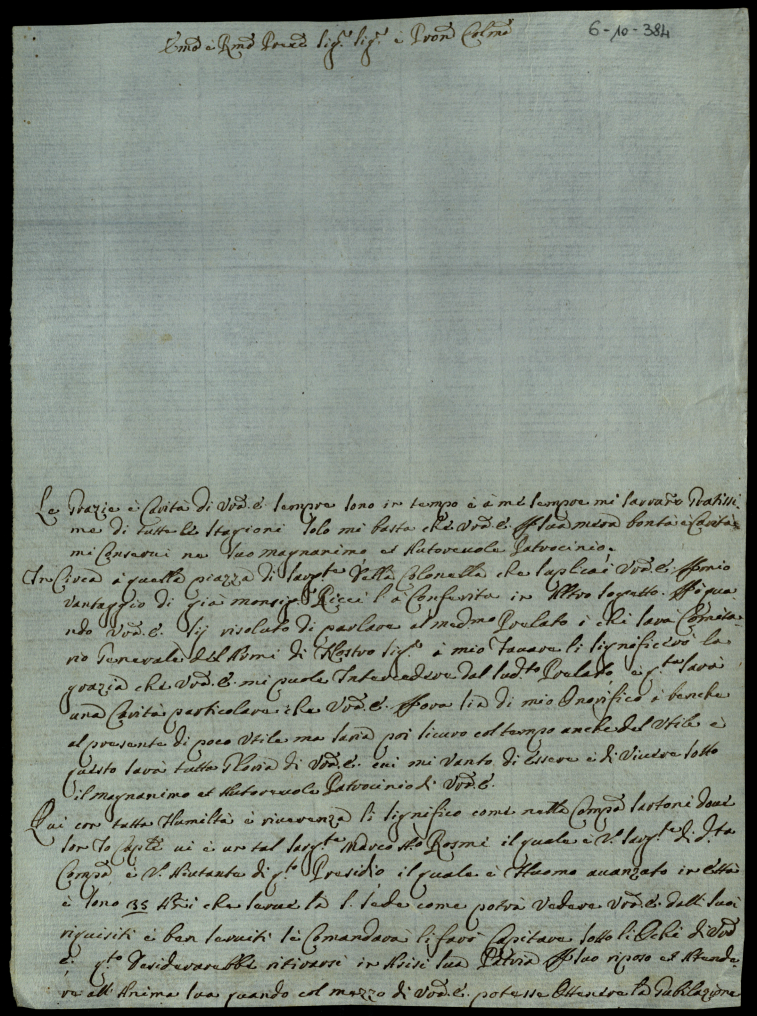 6-10-384
Emo è Rmo Prñe Sigr. Sigr. è Pron Colmo
Le Grazie è Carità di Vrã. E. sempre sono in tempo è à me sempre mi sarrano Gratissi-
me di tutte le Stagioni solo mi basta che Vrã. E. p sua mera bontà è Carità
mi Conservi ne suo magnanimo et Autorevole Patrocinio.
In Circa à quella piazza di sargte. della Colonella che suplicai Vrã. E. p mio
vantaggio di già monsigr. Ricci l'à Conferita in Altro sogetto. p qua
ndo Vrã. E. sij risoluto di parlare al medmo Prelato ò chi sarà Comissa-
rio Generale dell Armi di Nostro Sigr. à mio favore li significerò la
grazia che Vrã. E. mi puole Intercedere dal sudto. Prelato, è qta. sarà
una Carità particolare che Vrã. E. p ora sia di mio Onorifico à benche
al presente di poco Vtile ma saria poi sicuro col tempo anche del Vtile è
questo sarà tutta Gloria di Vrã. E. cui mi vanto di essere è di vivere sotto
il magnanimo et Autorevole Patrocinio di Vrã. E.
Qui con tutta Humiltà è riverenza li significo come nella Compa Sartoni dove
son Io Caple. vi è un tal sargte. Marco Ato. Rosmi il quale è V. sargte. di dta
Compa è V. Aiutante di qto. Presidio il quale è Huomo avanzato in Età
è sono 35 Anni che serve la S. Sede come potrà vedere Vrã. E. dalli suoi
riquisiti è ben serviti se Comandarà li farò Capitare sotto li Ochi di Vrã
E. qto. desiderarebbe ritirarsi in Asisi sua Patria p suo riposo et Attende-
re all Anima sua quando col mezzo di Vrã. E. potesse Ottenere la Giubilazione